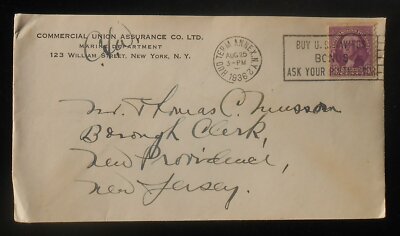 COMMERCIAL UNION ASSURANCE CO. LTD.
MARINE DEPARTMENT
123 WILLIAM STREET, NEW YORK, N. Y.
HUD. TERM. ANNEX, N.Y. 2
AUG 25
3-PM
1936
BUY U.S. SAVINGS
BONDS
ASK YOUR POSTMASTER
Mr. Thomas C.
Borough Clerk,
New Providence,
New Jersey.